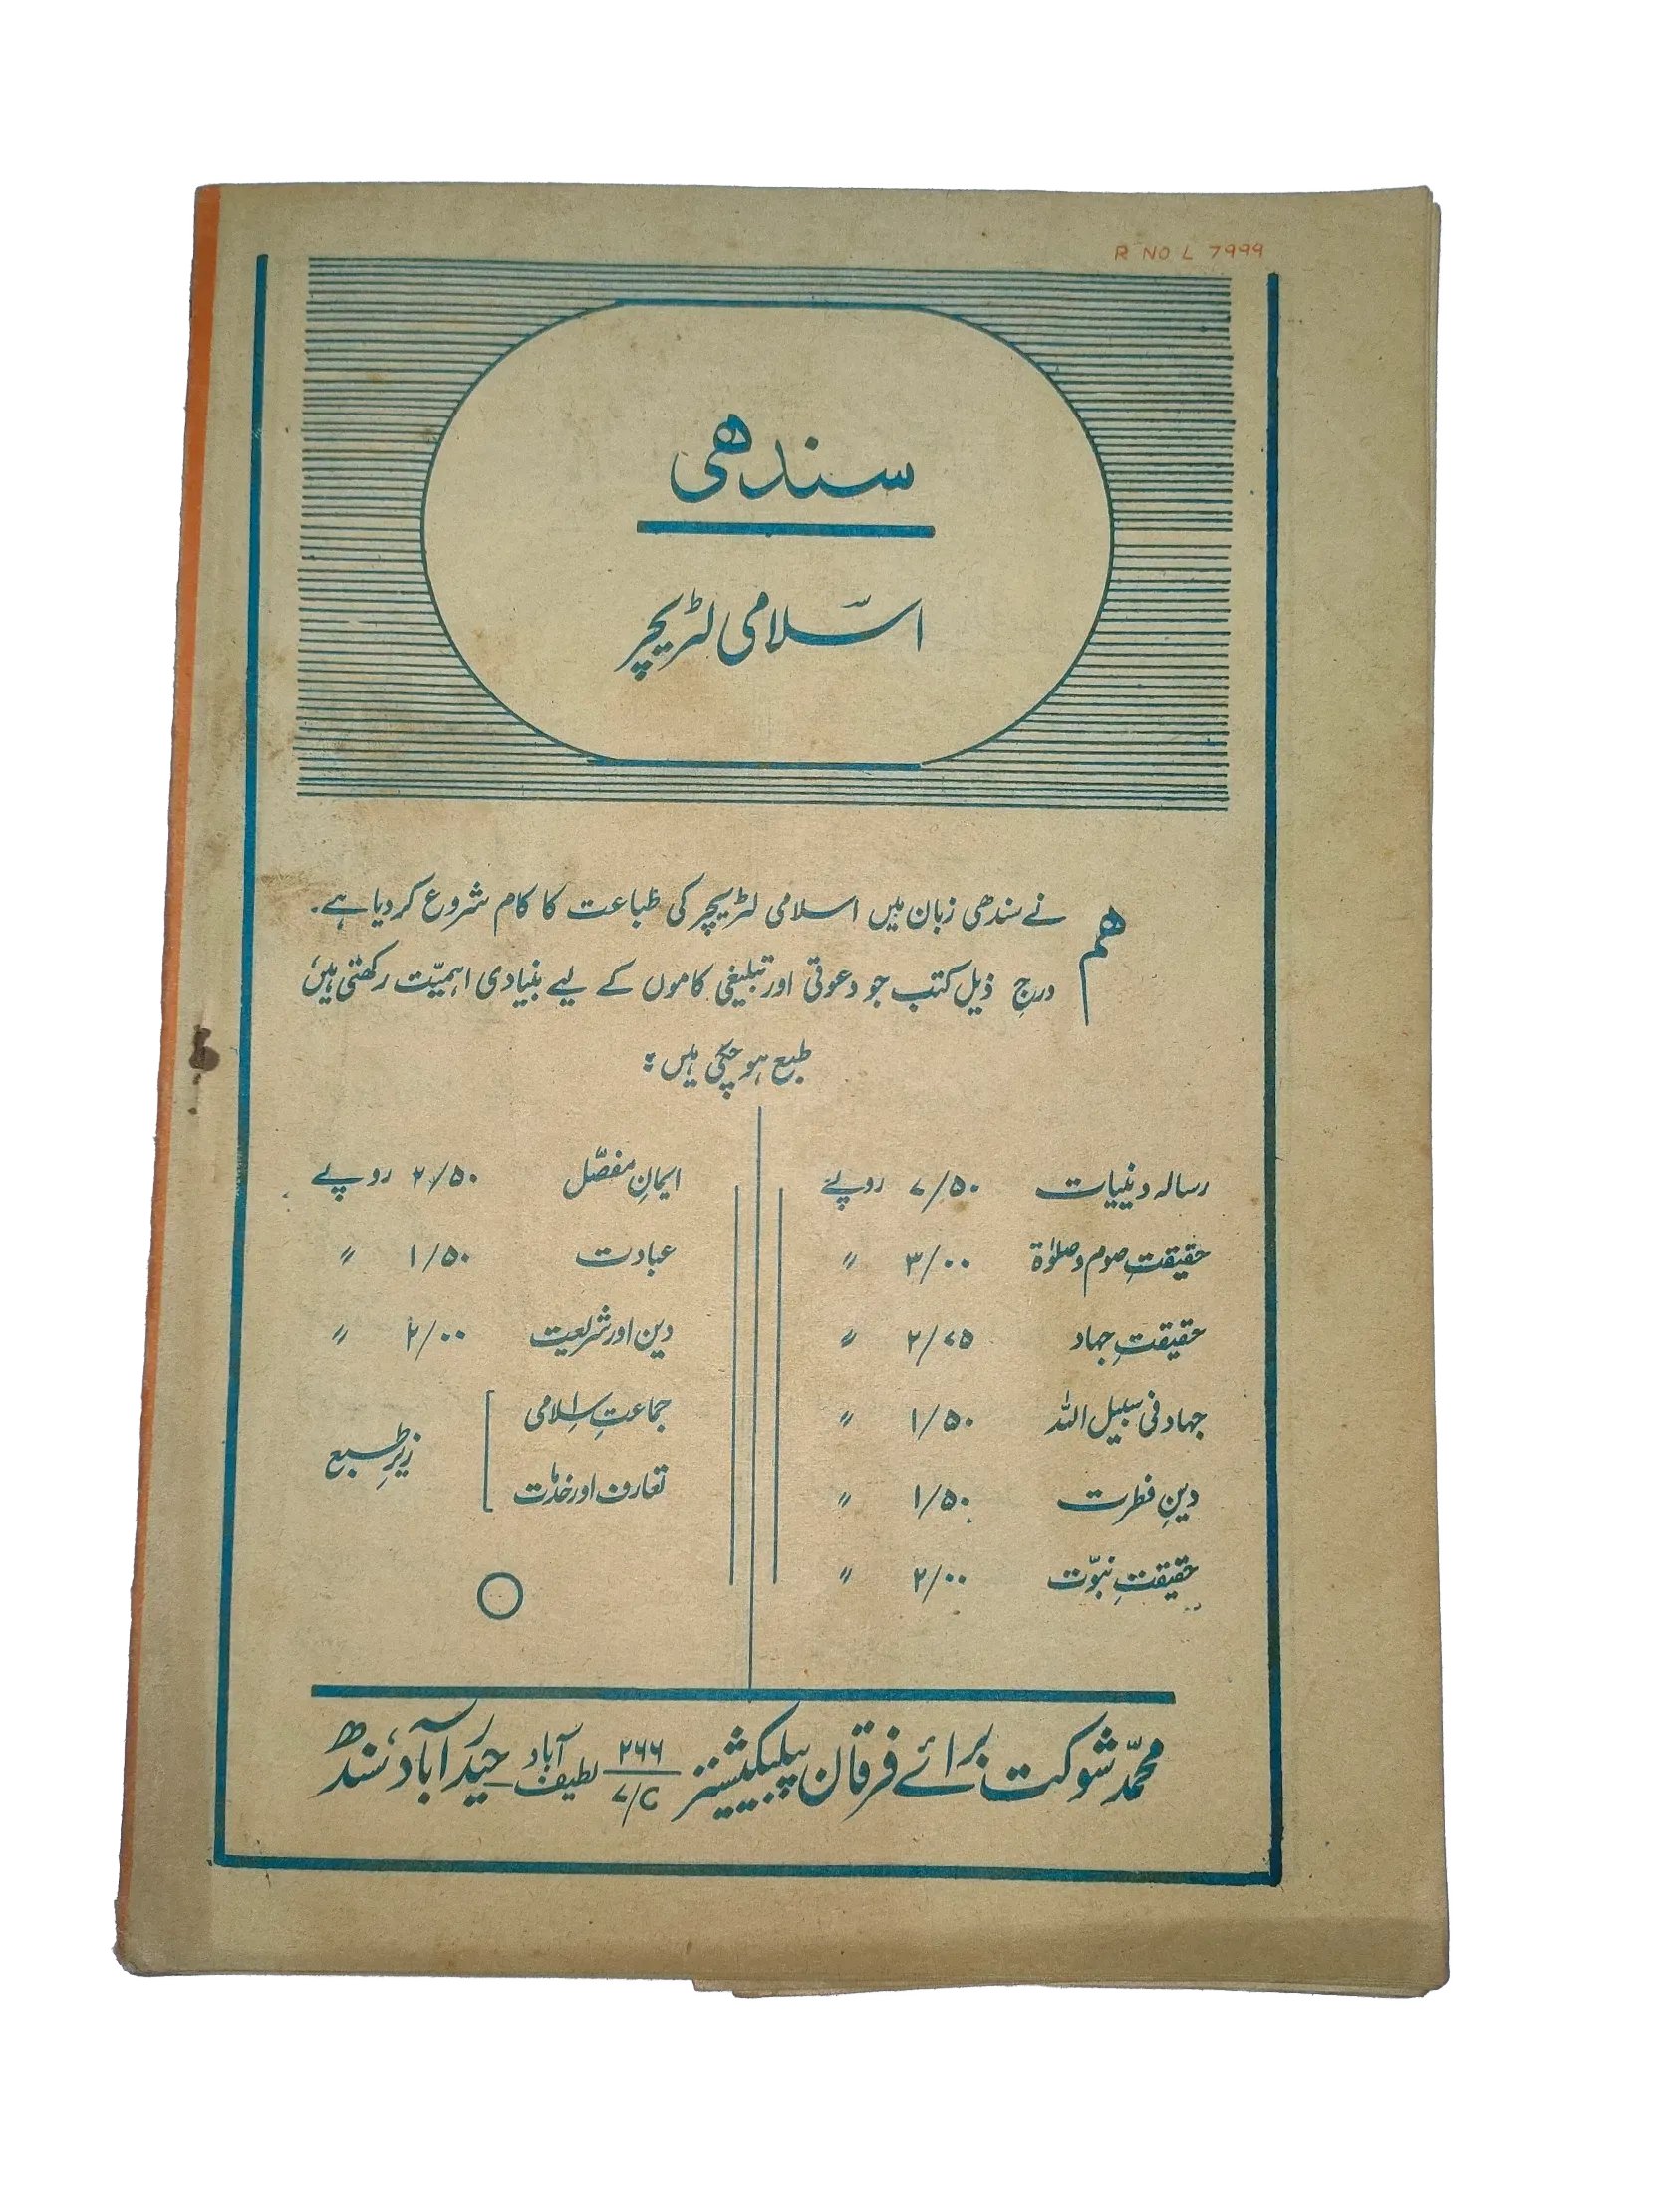 R NO L 7999
سندھی
اسلامی لٹریچر
ہم نے سندھی زبان میں اسلامی لٹریچر کی طباعت کا کام شروع کردیا ہے۔
درجِ ذیل کتب جو دعوتی اور تبلیغی کاموں کے لیے بنیادی اہمیّت رکھتی ہیں،
طبع ہو چکی ہیں :
رسالہ دینیات ۷/۵۰ روپے
حقیقتِ صوم و صلوٰۃ ۳/۰۰ 〃
حقیقتِ جہاد ۲/۷۵ 〃
جہاد فی سبیل اللہ ۱/۵۰ 〃
دینِ فطرت ۱/۵۰ 〃
حقیقتِ نبوّت ۲/۰۰ 〃
ایمانِ مفصّل ۲/۵۰ روپے
عبادت ۱/۵۰ 〃
دین اور شریعت ۲/۰۰ 〃
جماعتِ اسلامی
تعارف اور خدمات
زیرِ طبع
محمّد شوکت برائے فرقان پبلیکیشنز ۲۶۶ ۷/C لطیف آباد حیدرآباد، سندھ